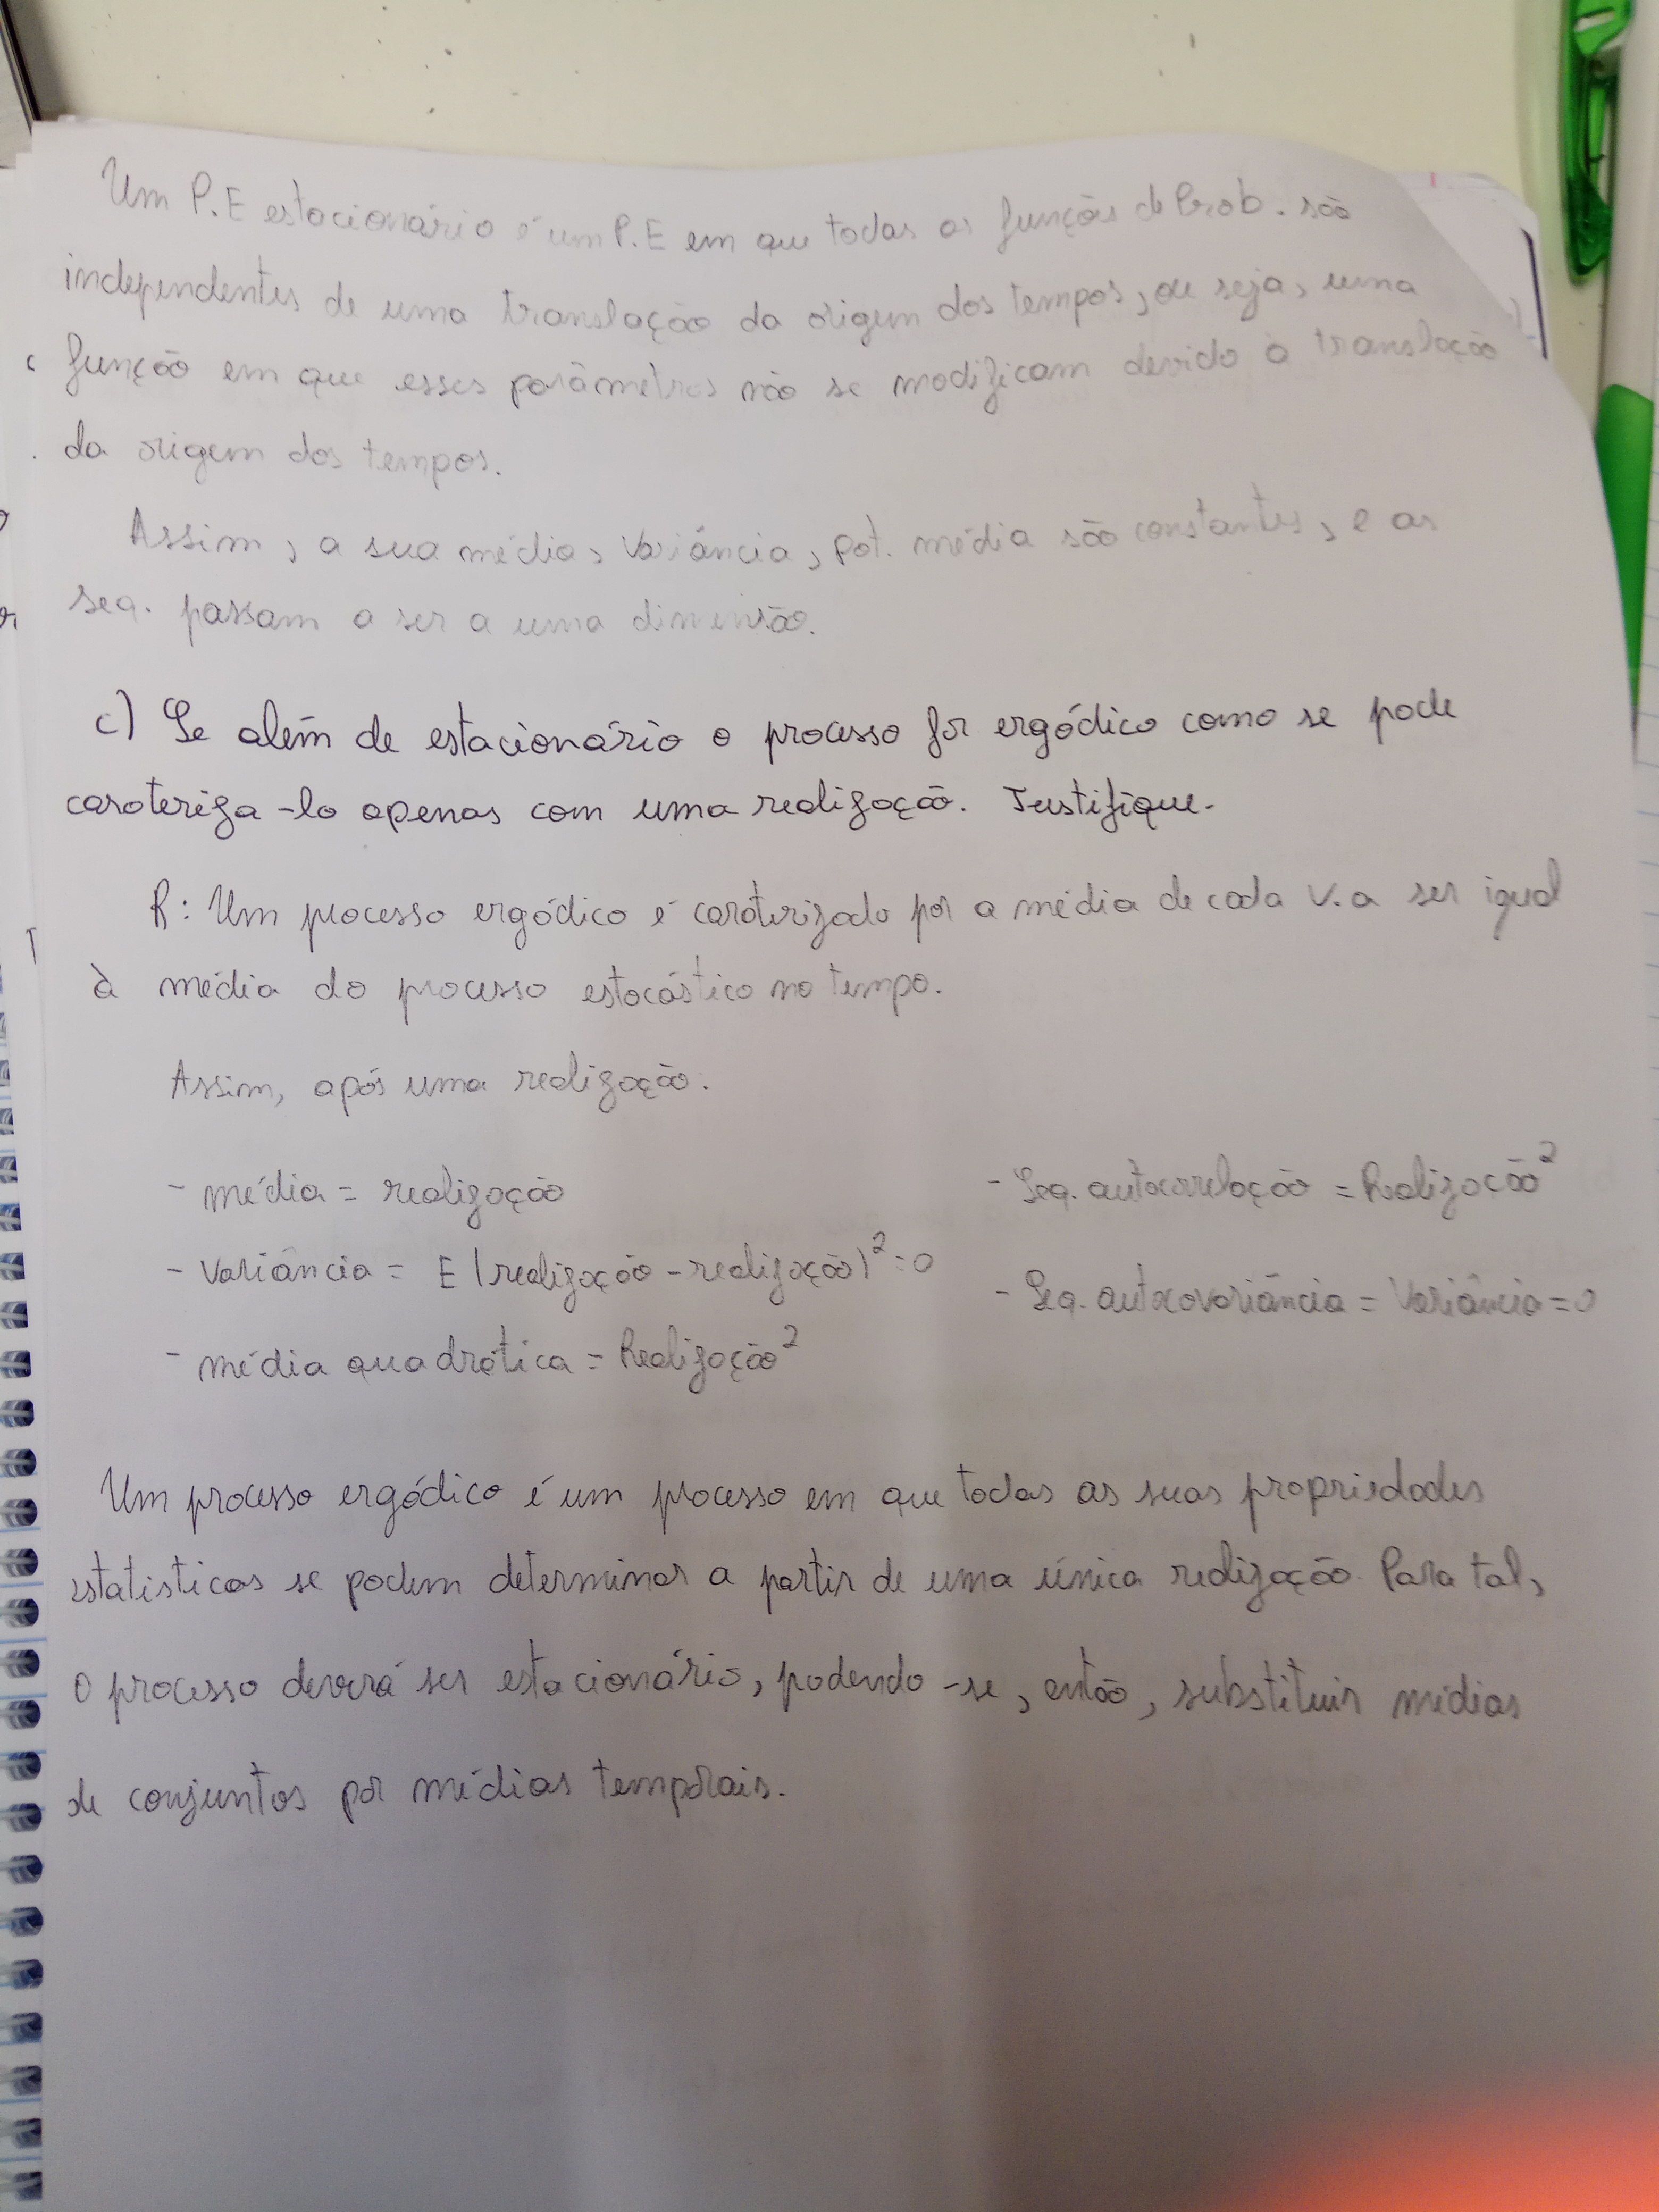 Um P.E estacionário é um P.E em que todas as funções de Prob. são
independentes de uma translação da origem dos tempos, ou seja, uma
função em que esses parâmetros não se modificam devido à translação
da origem dos tempos.
Assim, a sua média, variância, pot. média são constantes, e as
seq. passam a ser a uma dimensão.
c) Se além de estacionário o processo for ergódico como se pode
caroteriza-lo apenas com uma realização. Justifique.
R: Um processo ergódico é caroterizado por a média de cada v.a ser igual
à média do processo estocástico no tempo.
Assim, após uma realização:
- média = realização
- Seq. autocorrelação = Realização²
- Variância = E (realização - realização)² = 0
- Seq. autocovariância = Variância = 0
- média quadrática = Realização²
Um processo ergódico é um processo em que todas as suas propriedades
estatisticas se podem determinar a partir de uma única realização. Para tal,
o processo deverá ser estacionário, podendo-se, então, substituir médias
de conjuntos por médias temporais.